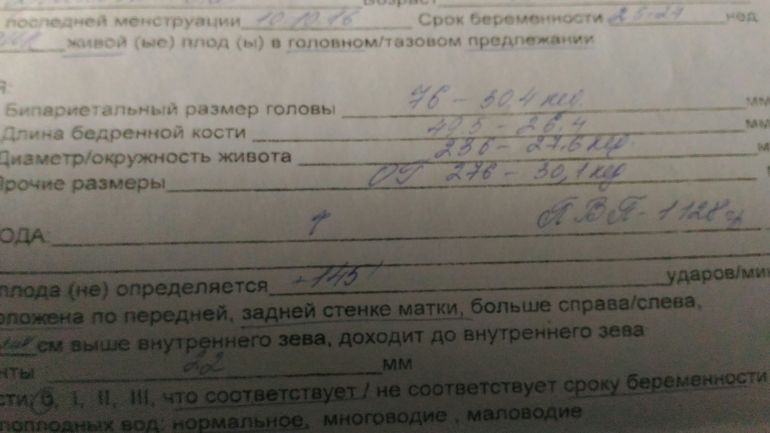 Возраст
последней менструации 10.10.16 Срок беременности нед
живой (ые) плод (ы) в головном/тазовом предлежании
Бипариетальный размер головы 76 – 30,4 нед. мм
Длина бедренной кости 49,5 – 26,4 мм
Диаметр/окружность живота 236 – 27.6 нед. м
Прочие размеры ОГ 276 – 30,1 нед
ОДА: ПВП - 1128 гр
плода (не) определяется + 145 ударов/мин
оложена по передней, задней стенке матки, больше справа/слева,
см выше внутреннего зева, доходит до внутреннего зева
нты 22 мм
сти: 0, I, II, III, что соответствует / не соответствует сроку беременности
лоплодных вод: нормальное, многоводие , маловодие